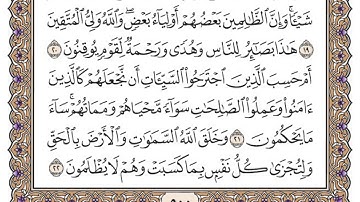 شَيْـًٔا ۚ وَإِنَّ ٱلظَّـٰلِمِينَ بَعْضُهُمْ أَوْلِيَآءُ بَعْضٍ ۖ وَٱللَّهُ وَلِىُّ ٱلْمُتَّقِينَ
١٩ هَـٰذَا بَصَـٰٓئِرُ لِلنَّاسِ وَهُدًى وَرَحْمَةٌ لِّقَوْمٍ يُوقِنُونَ ٢٠
أَمْ حَسِبَ ٱلَّذِينَ ٱجْتَرَحُوا۟ ٱلسَّيِّـَٔاتِ أَن نَّجْعَلَهُمْ كَٱلَّذِينَ
ءَامَنُوا۟ وَعَمِلُوا۟ ٱلصَّـٰلِحَـٰتِ سَوَآءً مَّحْيَاهُمْ وَمَمَاتُهُمْ ۚ سَآءَ
مَا يَحْكُمُونَ ٢١ وَخَلَقَ ٱللَّهُ ٱلسَّمَـٰوَٰتِ وَٱلْأَرْضَ بِٱلْحَقِّ
وَلِتُجْزَىٰ كُلُّ نَفْسٍۭ بِمَا كَسَبَتْ وَهُمْ لَا يُظْلَمُونَ ٢٢
٥٠٠